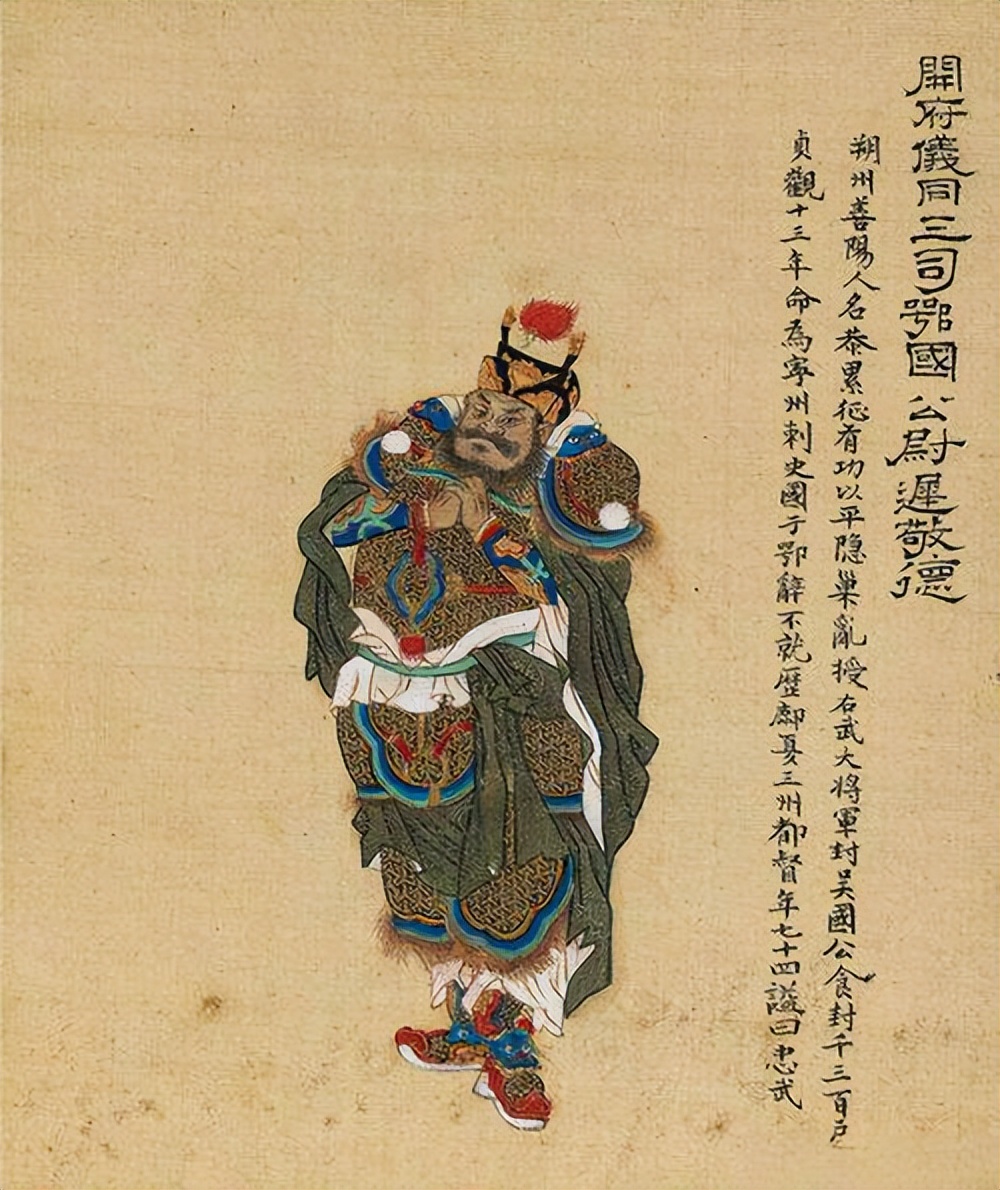 開府儀同三司鄂國公尉遲敬德
朔州善陽人名恭累征有功以平隐巢亂授右武大将軍封吴國公食封千三百戶
貞觀十三年命為寧州刺史國于鄂辭不就歷鄜夏三州都督年七十四謚曰忠武